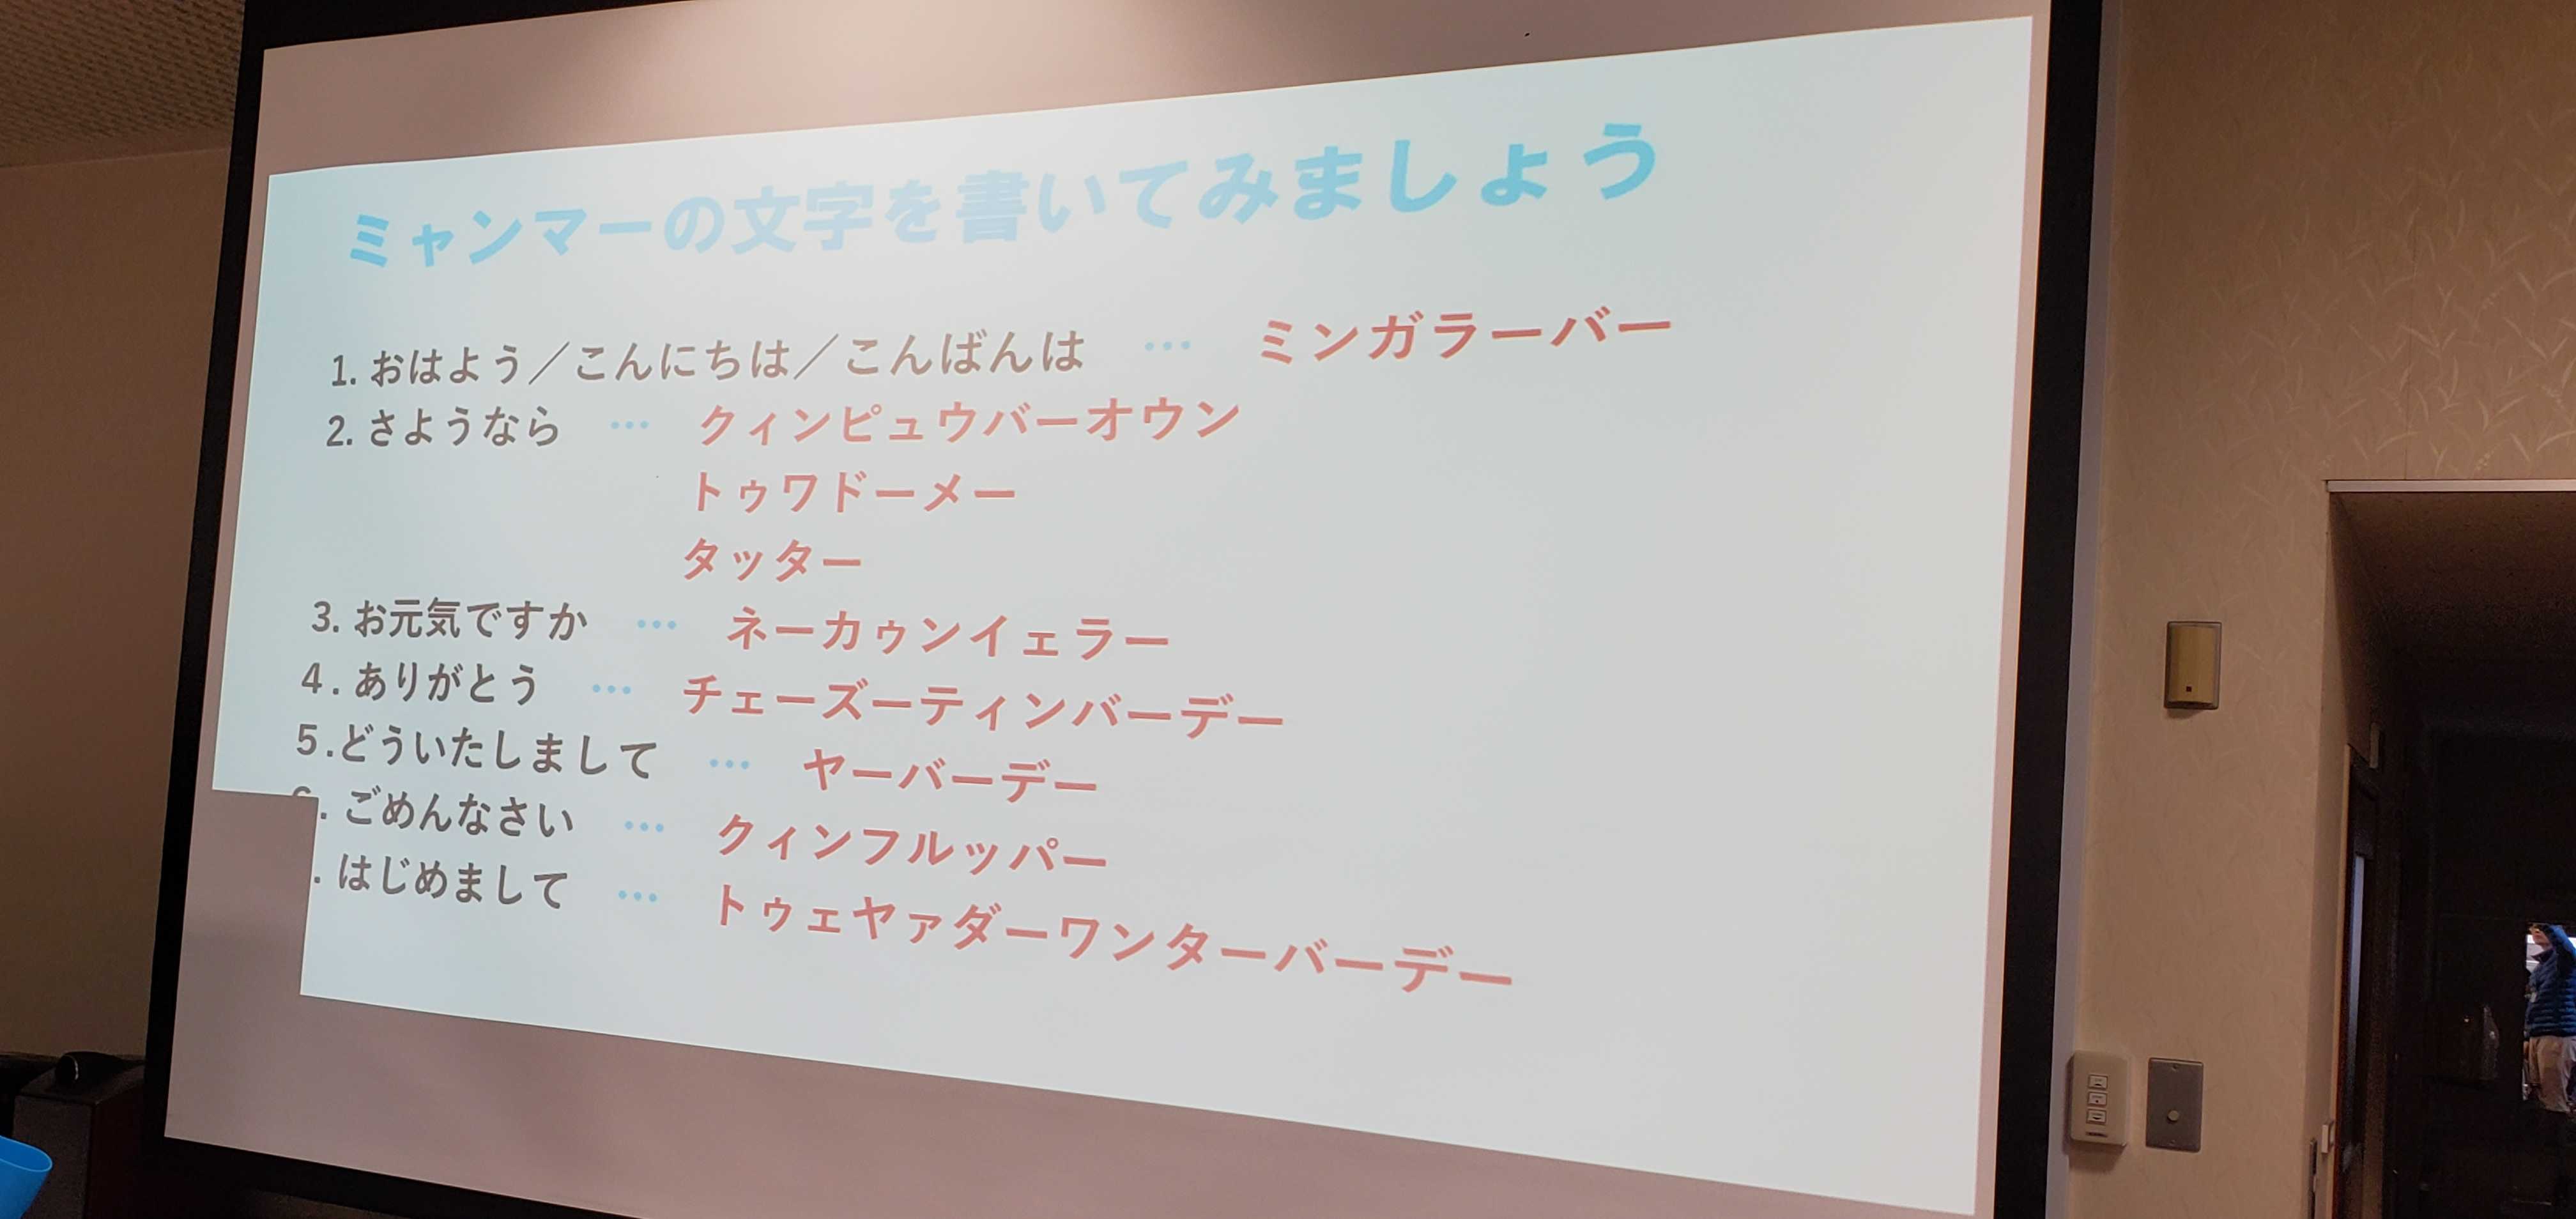 ミャンマーの文字を書いてみましょう
1. おはよう／こんにちは／こんばんは … ミンガラーバー
2. さようなら … クィンピュウバーオウン
トゥワドーメー
タッター
3. お元気ですか … ネーカゥンイェラー
4. ありがとう … チェーズーティンバーデー
5.どういたしまして … ヤーバーデー
. ごめんなさい … クィンフルッパー
. はじめまして … トゥェヤァダーワンターバーデー